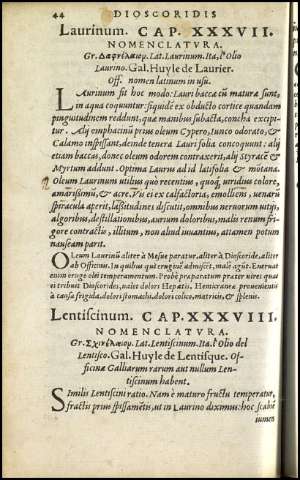 44 DIOSCORIDIS
Laurinum. CAP. XXXVII.
NOMENCLATVRA.
Gr. Δαφνέλαιον. Lat. Laurinum. Ita. Olio
Laurino. Gal. Huyle de Laurier.
Off. nomen latinum in usu.
LAurinum fit hoc modo: Lauri baccæ cũ maturæ sunt,
in aqua coquuntur: siquidẽ ex obducto cortice quandam
pinguitudinem reddunt, quæ manibus subacta, concha excipi-
tur. Alij emphacini prius oleum Cypero, Iunco odorato, &
Calamo inspissant, deinde tenera Lauri folia concoquunt: alij
etiam baccas, donec oleum odorem contraxerit, alij Styracẽ &
Myrtum addunt. Optima Laurus ad id latifolia & mõtana.
Oleum Laurinum utilius quo recentius, quoq́; uiridius colore,
amarißimũ, & acre. Vis ei ex calfactoria, emolliens, uenarũ
spiracula aperit, laßitudines discutit, omnibus neruorum uitijs,
algoribus, destillationibus, aurium doloribus, malis renum fri-
gore contractis, illitum, non aliud iuuantius, attamen potum
nauseam parit.
OLeum Laurinũ aliter à Mesue paratur, aliter à Dioscoride, aliter
ab Officinis. In quibus quæ erugine admiscet, male agũt. Eneruat
enim erugo olei temperamentum. Probè præparatum præter uires quas
ei tribuit Dioscorides, ualet dolori Hepatis. Hemicraneæ prouenientis
à causa frigida, dolori stomachi, dolori colico, matricis, & splenis.
Lentiscinum. CAP. XXXVIII.
NOMENCLATVRA.
Gr. Σχινέλαιον. Lat. Lentiscinum. Ita. Olio del
Lentisco. Gal. Huyle de Lentisque. Of-
ficinæ Galliarum rarum aut nullum Len-
tiscinum habent.
SImilis Lentiscini ratio. Nam è maturo fructu temperatur,
fractis prius spißamẽtis, ut in Laurino diximus: hoc scabiẽ
iumen